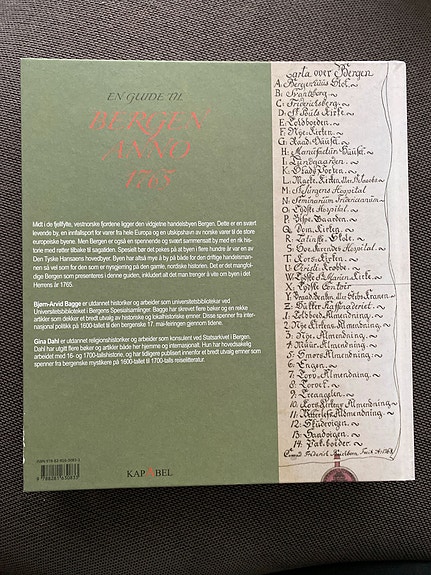 EN GUIDE TIL
BERGEN
ANNO
1765
Midt i de fjellfylte, vestnorske fjordene ligger den vidgjetne handelsbyen Bergen. Dette er en svært
levende by, en innfallsport for varer fra hele Europa og en utskipshavn av norske varer til de store
europeiske byene. Men Bergen er også en spennende og svært sammensatt by med en rik his-
torie med røtter tilbake til sagatiden. Spesielt bær det pekes på at byen i flere hundre år var en av
Den Tyske Hansaens hovedbyer. Byen har altså mye å by på både for den driftige handelsman-
nen så vel som for den som er nysgjerrig på den gamle, nordiske historien. Det er det mangfol-
dige Bergen som presenteres i denne guiden, inkludert alt det man trenger å vite om byen i det
Herrens år 1765.
Bjørn-Arvid Bagge er utdannet historiker og arbeider som universitetsbibliotekar ved
Universitetsbiblioteket i Bergens Spesialsamlinger. Bagge har skrevet flere bøker og en rekke
artikler som dekker et bredt utvalg av historiske og lokalhistoriske emner. Disse spenner fra inter-
nasjonal politikk på 1600-tallet til den bergenske 17. mai-feiringen gjennom tidene.
Gina Dahl er utdannet religionshistoriker og arbeider som konsulent ved Statsarkivet i Bergen.
Dahl har utgitt flere bøker og artikler både her hjemme og internasjonalt. Hun har hovedsakelig
arbeidet med 16- og 1700-tallshistorie, og har tidligere publisert innenfor et bredt utvalg emner som
spenner fra bergenske mystikere på 1600-tallet til 1700-talls reiselitteratur.
KAPABEL
Carta over Bergen
A: Bergenhuus Slot.
B: Svartberg.
C: Fridericsberg.
D: St Pauls Kirke
E: Toldboden.
F: Nye-Kirken.
G: Raad-Huuset.
H: Manufactur Huuset.
I: Lungegaarden.
K: Stads Porten.
L: Marte Kirken
M: St Jürgens Hospital
N: Seminarium Fridericianum
O: Tydske Hospital.
P: Bispe-Gaarden.
Q: Dom Kirken.
R: Latinske-Skole.
S: Søe Farendes Hospital.
T: Kors-Kirken.
U: Christi-Krybbe.
W: Tydske St Marien Kirke.
X: Tydske Contoir
Z: Sukker Raffinaderiet.
1: Toldbod Almending.
2: Nye Kirkens Almending.
3: Nye-Almending.
4: Muur Almending.
5: Smørs Almending.
6: Engen.
7: Torv Almending.
8: Torvet.
9: Vreangelen.
10: Kors Kirkens Almending
11: Vetterlefs Almendning
12: Skudevigen.
13: Sandvigen.
14: Pakboder.